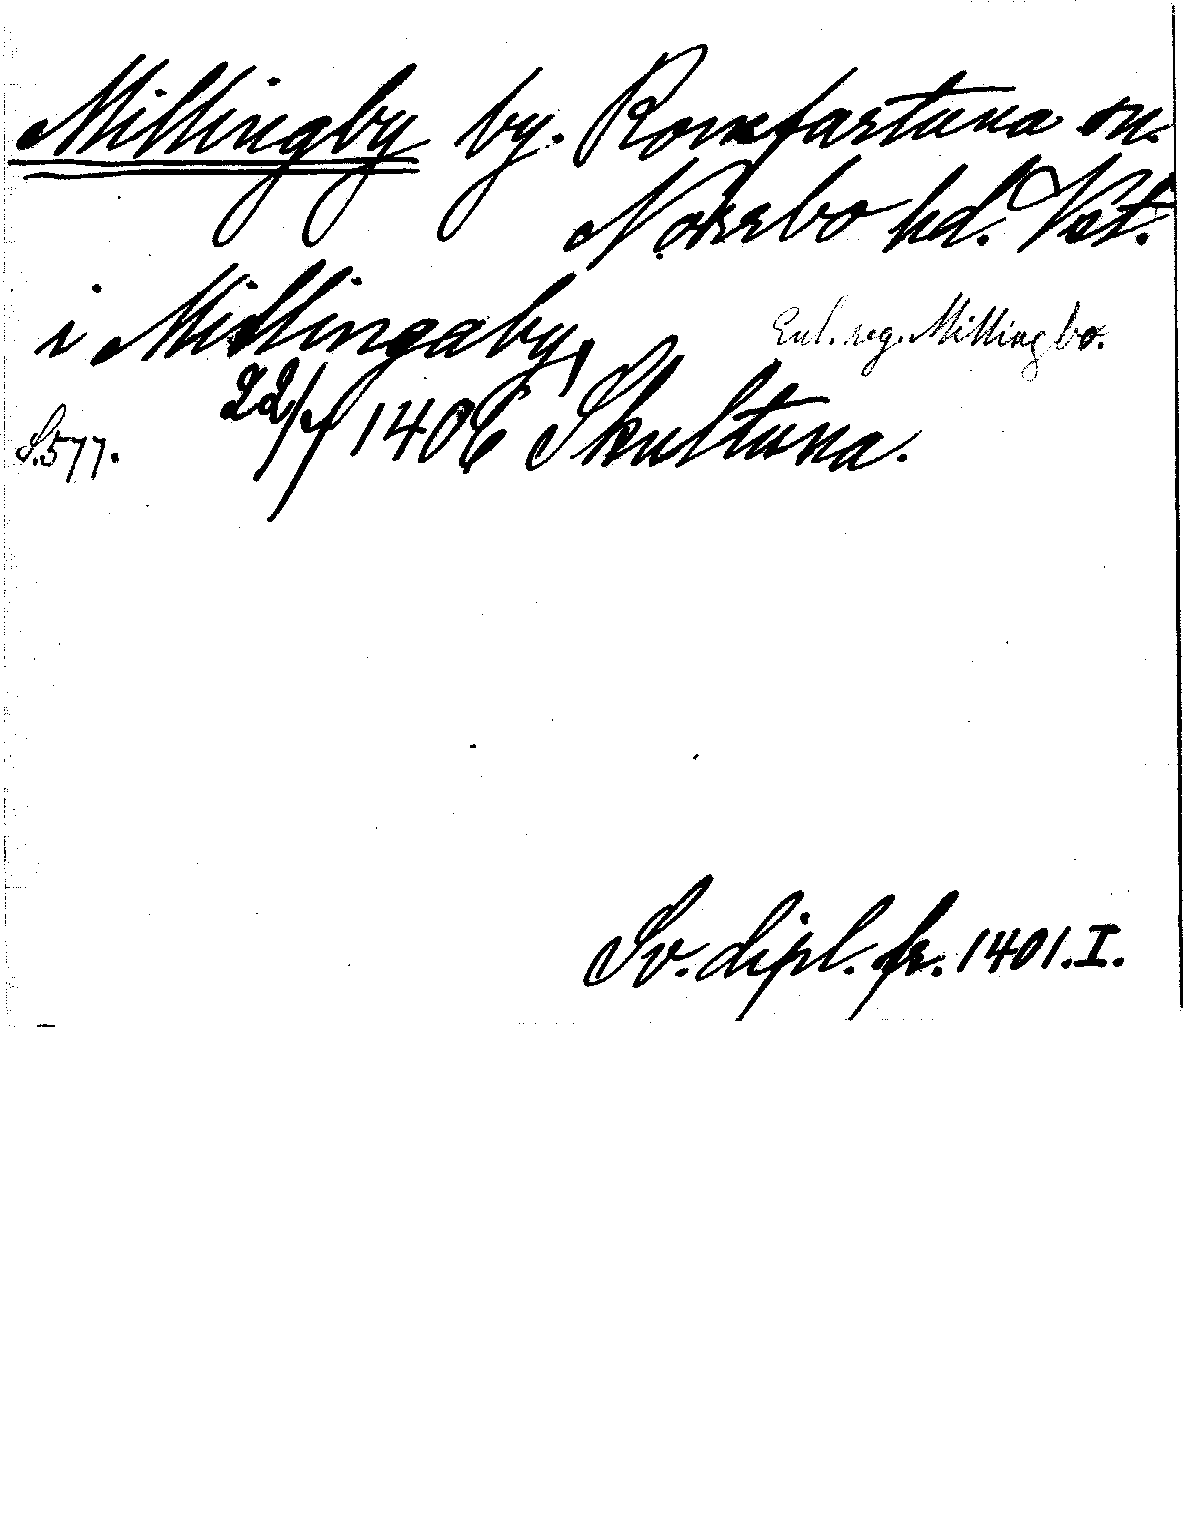 Millingby by. Romfartuna sn.
Norrbo hd. Vst.
i Millingaby,
Enl. reg. Millingbo.
22/7 1406 Skultuna.
S. 577.
Sv. dipl. fr. 1401. I.